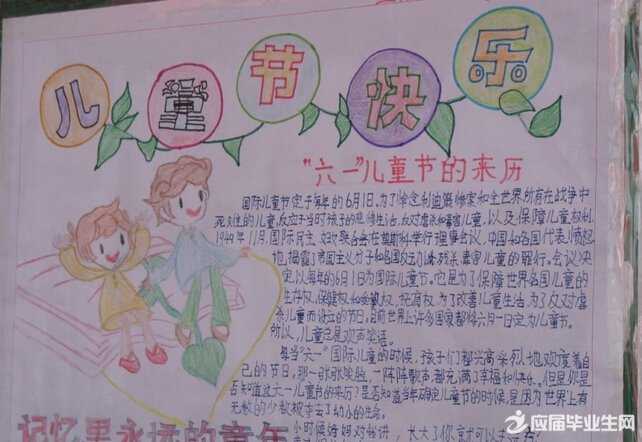 儿童节快乐
“六一”儿童节的来历
国际儿童节定于每年的6月1日。为了悼念利迪策惨案和全世界所有在战争中
死难的儿童,反对虐杀和毒害儿童,以及保障儿童权利,
1949年11月,国际民主妇女联合会在莫斯科举行理事会议,中国和各国代表愤怒
地揭露了帝国主义分子和各国反动派残杀、毒害儿童的罪行。会议决
定以每年的6月1日为国际儿童节。它是为了保障世界各国儿童的
生存权、保健权和受教育权、抚养权,为了改善儿童生活,为了反对虐
杀儿童而设立的节日,目前世界上许多国家都将六月一日定为儿童节。
所以,儿童总是欢声笑语。
每当“六一”国际儿童的时候,孩子们都兴高采烈地欢度着自
己的节日,那一张张笑脸,一阵阵歌声都充满了幸福和快乐。但是你是
否知道这六一儿童节的来历?是否知道当年确定儿童节的时候,是因为世界上有
无数的少数被夺去了幼小的生命。
记忆里永远的童年
应届毕业生网